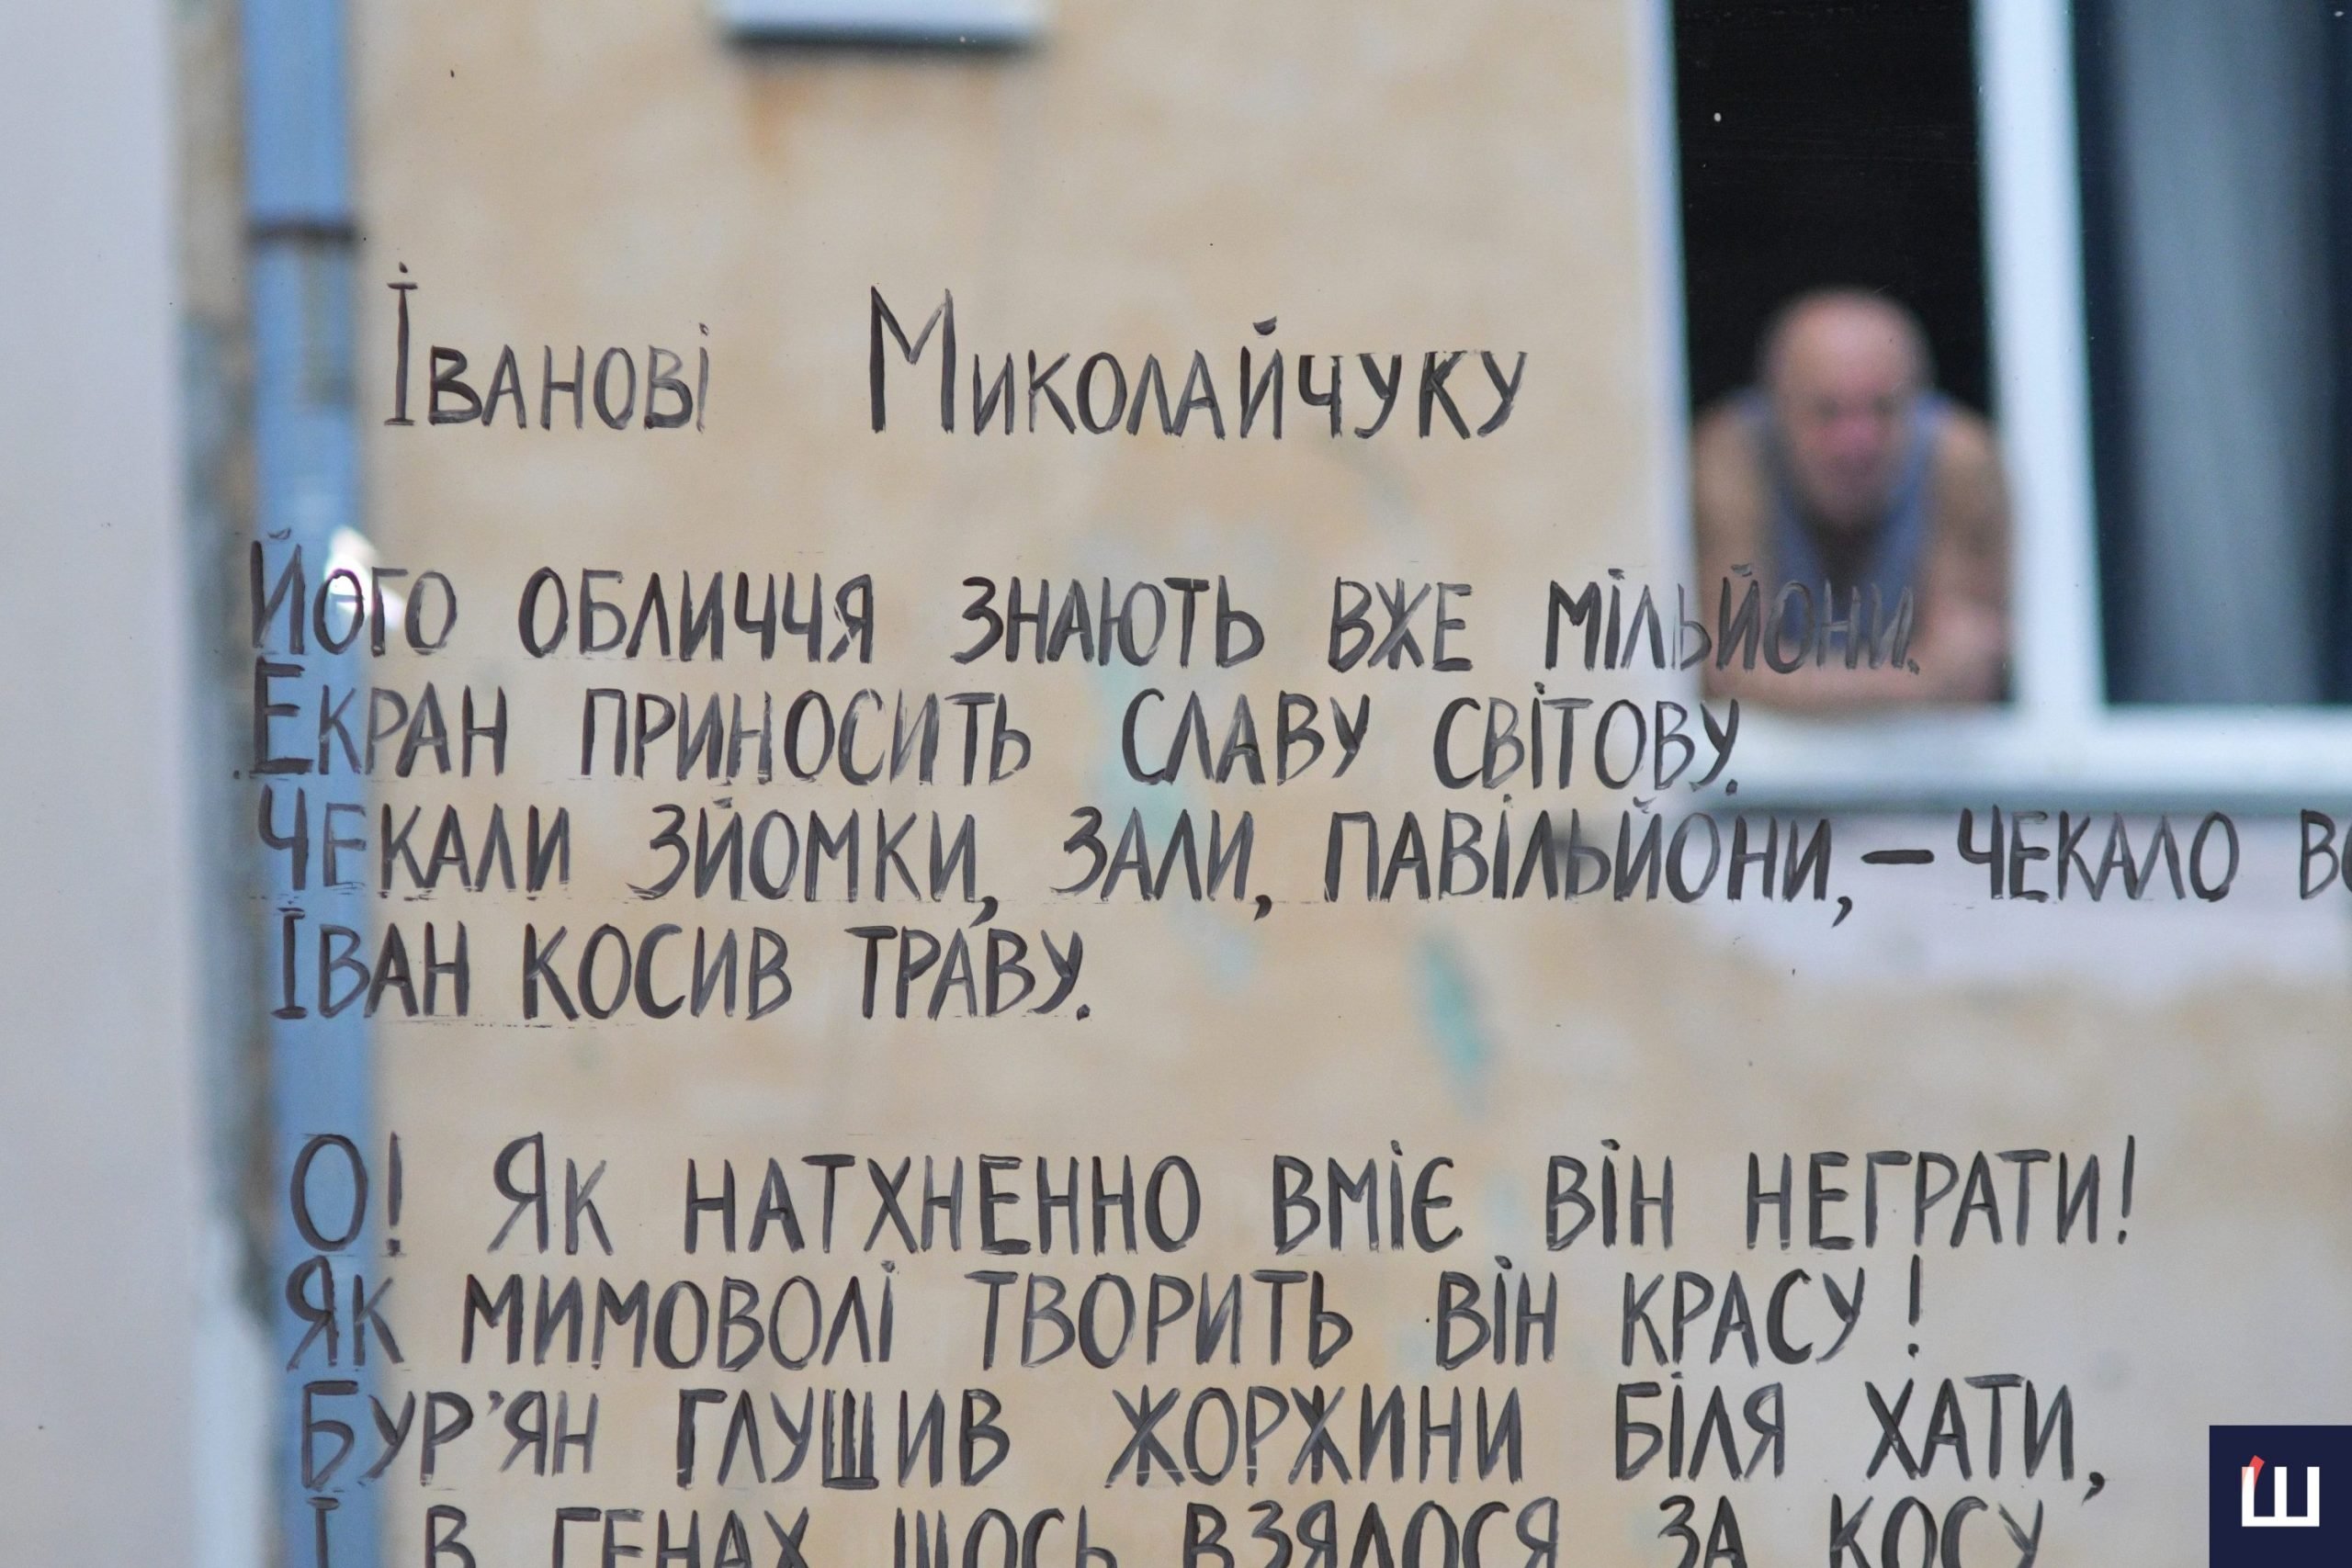 Іванові Миколайчуку
Його обличчя знають вже мільйони.
Екран приносить славу світову.
Чекали зйомки, зали, павільйони, – чекало
Іван косив траву.
О! Як натхненно вміє він неграти!
Як мимоволі творить він красу!
Бур'ян глушив жоржини біля хати,
І в генах щось взялося за косу
Ш